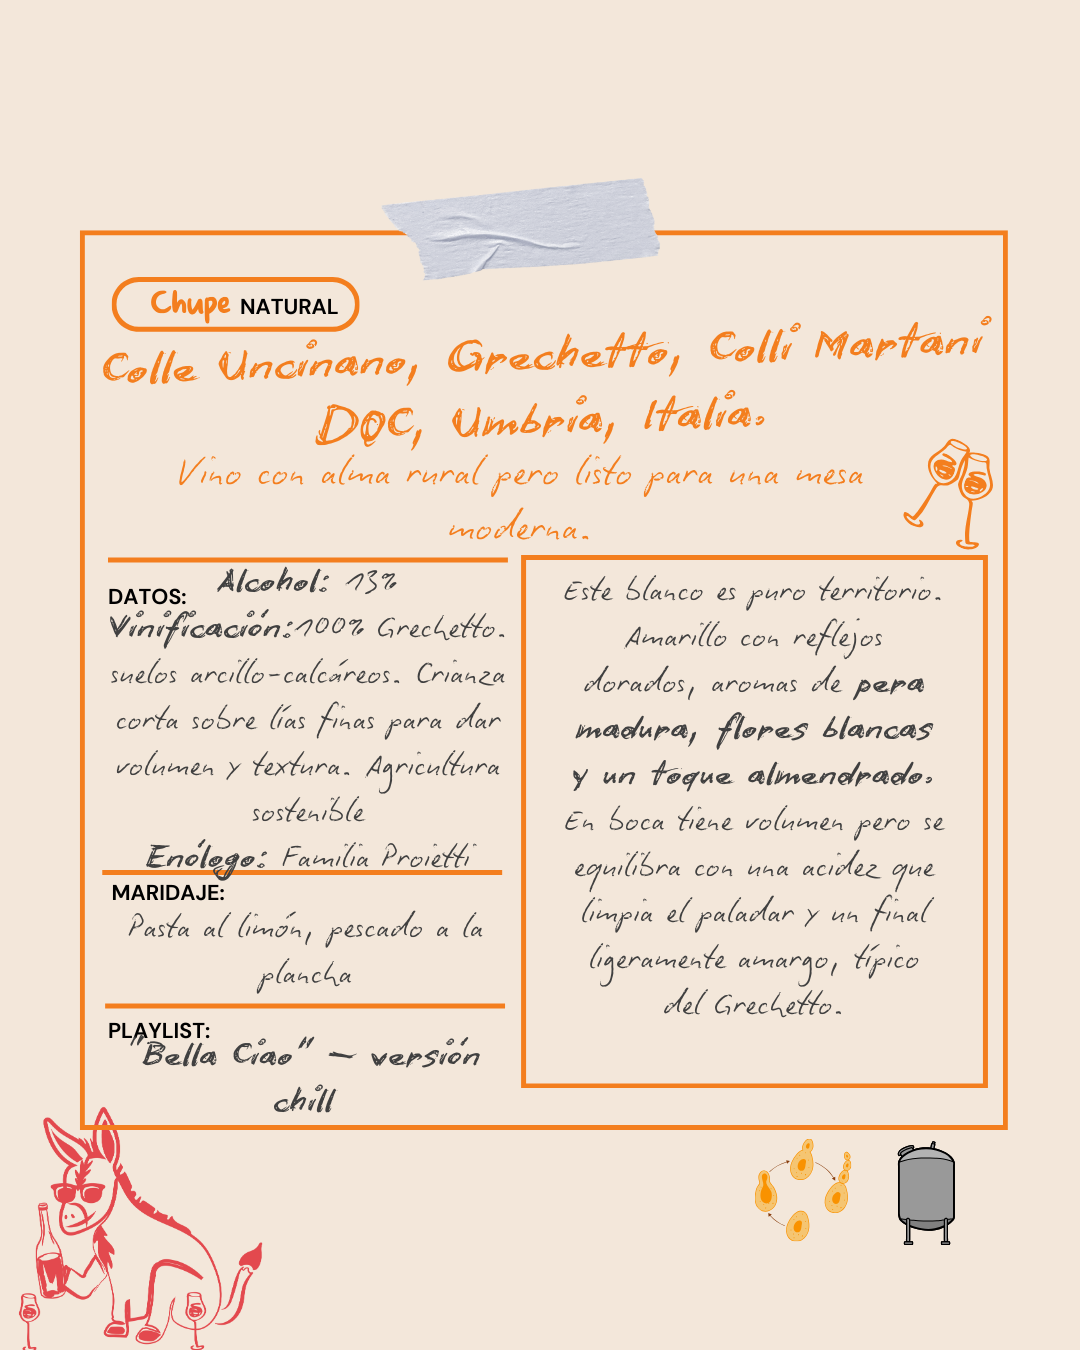 Chupe NATURAL
Colle Uncinano, Grechetto, Colli Martani
DOC, Umbria, Italia.
Vino con alma rural pero listo para una mesa
moderna.
DATOS: Alcohol: 13%
Vinificación:100% Grechetto.
suelos arcillo-calcáreos. Crianza
corta sobre lías finas para dar
volumen y textura. Agricultura
sostenible
Enólogo: Familia Proietti
MARIDAJE:
Pasta al limón, pescado a la
plancha
PLAYLIST:
"Bella Ciao" – versión
chill
Este blanco es puro territorio.
Amarillo con reflejos
dorados, aromas de pera
madura, flores blancas
y un toque almendrado.
En boca tiene volumen pero se
equilibra con una acidez que
limpia el paladar y un final
ligeramente amargo, típico
del Grechetto.